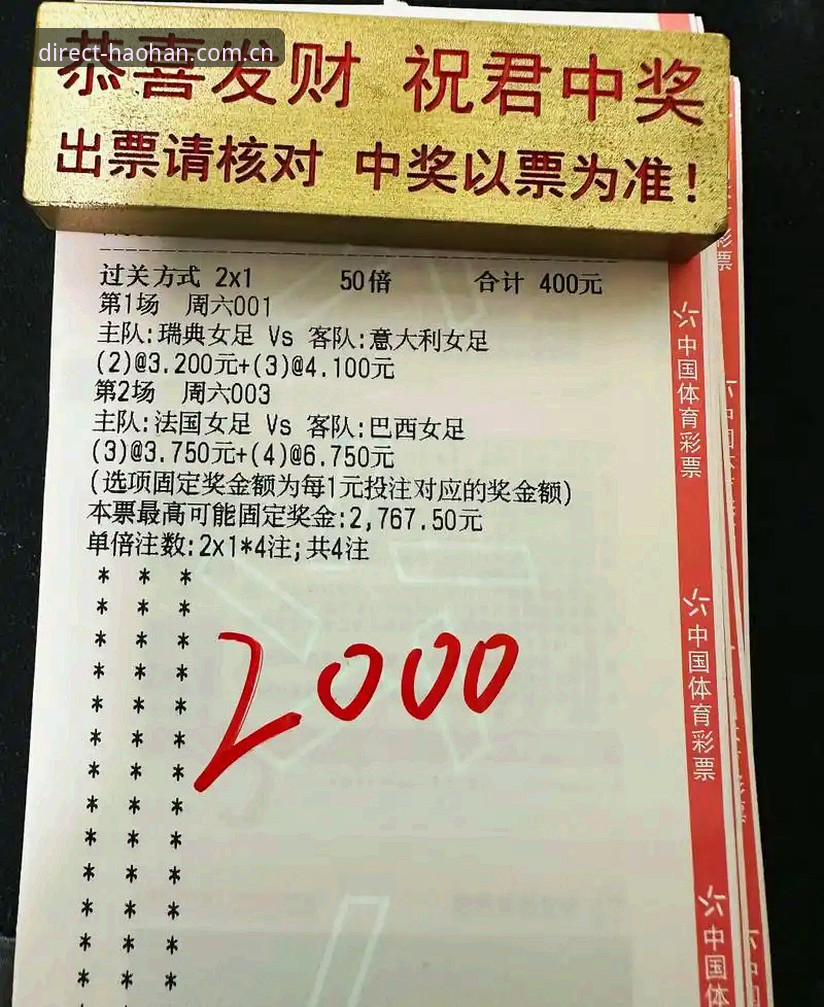 direct-haohan.com.cn
恭喜发财 祝君中奖
出票请核对 中奖以票为准!
过关方式 2x1 50倍 合计 400元
第1场 周六001
主队:瑞典女足 Vs 客队:意大利女足
(2)@3.200元+(3)@4.100元
第2场 周六003
主队:法国女足 Vs 客队:巴西女足
(3)@3.750元+(4)@6.750元
(选项固定奖金额为每1元投注对应的奖金额)
本票最高可能固定奖金:2,767.50元
单倍注数:2x1*4注;共4注
* * *
* * *
* * *
* * *
* * *
* * *
* * *
* * *
* * *
* * *
* * *
* * *
* * *
2000
中国体育彩票
中国体育彩票
中国体
彩票